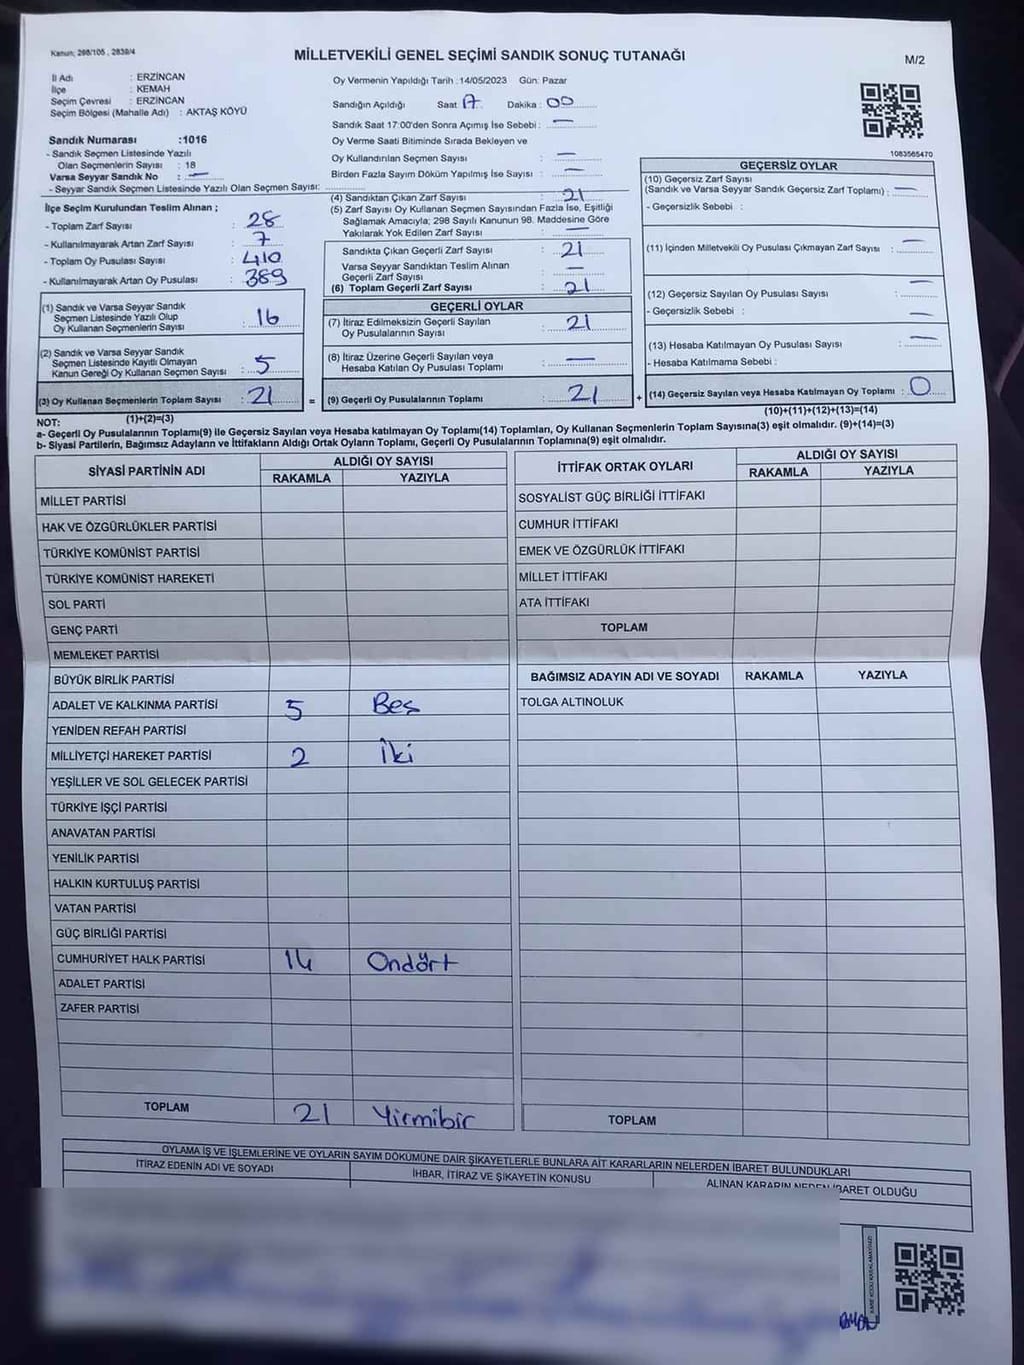 Kanun: 298/105, 2839/4
MİLLETVEKİLİ GENEL SEÇİMİ SANDIK SONUÇ TUTANAĞI
M/2
İl Adı : ERZİNCAN
İlçe : KEMAH
Seçim Çevresi : ERZİNCAN
Seçim Bölgesi (Mahalle Adı) : AKTAŞ KÖYÜ
Sandık Numarası :1016
- Sandık Seçmen Listesinde Yazılı
Olan Seçmenlerin Sayısı : 18
Varsa Seyyar Sandık No : —
- Seyyar Sandık Seçmen Listesinde Yazılı Olan Seçmen Sayısı:
Oy Vermenin Yapıldığı Tarih :14/05/2023 Gün: Pazar
Sandığın Açıldığı Saat: 17 Dakika : 00
Sandık Saat 17:00'den Sonra Açımış İse Sebebi : —
Oy Verme Saati Bitiminde Sırada Bekleyen ve
Oy Kullandırılan Seçmen Sayısı : —
Birden Fazla Sayım Döküm Yapılmış İse Sayısı : —
1083565470
İlçe Seçim Kurulundan Teslim Alınan ;
- Toplam Zarf Sayısı : 28
- Kullanılmayarak Artan Zarf Sayısı : 7
- Toplam Oy Pusulası Sayısı : 410
- Kullanılmayarak Artan Oy Pusulası : 389
(1) Sandık ve Varsa Seyyar Sandık
Seçmen Listesinde Yazılı Olup
Oy Kullanan Seçmenlerin Sayısı : 16
(2) Sandık ve Varsa Seyyar Sandık
Seçmen Listesinde Kayıtlı Olmayan
Kanun Gereği Oy Kullanan Seçmen Sayısı : 5
(3) Oy Kullanan Seçmenlerin Toplam Sayısı : 21
(1)+(2)=(3)
(4) Sandıktan Çıkan Zarf Sayısı : 21
(5) Zarf Sayısı Oy Kullanan Seçmen Sayısından Fazla İse, Eşitliği
Sağlamak Amacıyla; 298 Sayılı Kanunun 98. Maddesine Göre
Yakılarak Yok Edilen Zarf Sayısı : —
Sandıkta Çıkan Geçerli Zarf Sayısı : 21
Varsa Seyyar Sandıktan Teslim Alınan
Geçerli Zarf Sayısı : —
(6) Toplam Geçerli Zarf Sayısı : 21
GEÇERLİ OYLAR
(7) İtiraz Edilmeksizin Geçerli Sayılan
Oy Pusulalarının Sayısı : 21
(8) İtiraz Üzerine Geçerli Sayılan veya
Hesaba Katılan Oy Pusulası Toplamı : —
= (9) Geçerli Oy Pusulalarının Toplamı : 21
GEÇERSİZ OYLAR
(10) Geçersiz Zarf Sayısı
(Sandık ve Varsa Seyyar Sandık Geçersiz Zarf Toplamı) : —
- Geçersizlik Sebebi :
(11) İçinden Milletvekili Oy Pusulası Çıkmayan Zarf Sayısı : —
(12) Geçersiz Sayılan Oy Pusulası Sayısı : —
- Geçersizlik Sebebi : —
(13) Hesaba Katılmayan Oy Pusulası Sayısı : —
- Hesaba Katılmama Sebebi :
+ (14) Geçersiz Sayılan veya Hesaba Katılmayan Oy Toplamı : 0
(10)+(11)+(12)+(13)=(14)
NOT:
a- Geçerli Oy Pusulalarının Toplamı(9) ile Geçersiz Sayılan veya Hesaba katılmayan Oy Toplamı(14) Toplamları, Oy Kullanan Seçmenlerin Toplam Sayısına(3) eşit olmalıdır. (9)+(14)=(3)
b- Siyasi Partilerin, Bağımsız Adayların ve İttifakların Aldığı Ortak Oyların Toplamı, Geçerli Oy Pusulalarının Toplamına(9) eşit olmalıdır.
SİYASİ PARTİNİN ADI
ALDIĞI OY SAYISI
RAKAMLA YAZIYLA
MİLLET PARTİSİ
HAK VE ÖZGÜRLÜKLER PARTİSİ
TÜRKİYE KOMÜNİST PARTİSİ
TÜRKİYE KOMÜNİST HAREKETİ
SOL PARTİ
GENÇ PARTİ
MEMLEKET PARTİSİ
BÜYÜK BİRLİK PARTİSİ
ADALET VE KALKINMA PARTİSİ 5 Beş
YENİDEN REFAH PARTİSİ
MİLLİYETÇİ HAREKET PARTİSİ 2 İki
YEŞİLLER VE SOL GELECEK PARTİSİ
TÜRKİYE İŞÇİ PARTİSİ
ANAVATAN PARTİSİ
YENİLİK PARTİSİ
HALKIN KURTULUŞ PARTİSİ
VATAN PARTİSİ
GÜÇ BİRLİĞİ PARTİSİ
CUMHURİYET HALK PARTİSİ 14 Ondört
ADALET PARTİSİ
ZAFER PARTİSİ
TOPLAM 21 Yirmibir
İTTİFAK ORTAK OYLARI
ALDIĞI OY SAYISI
RAKAMLA YAZIYLA
SOSYALİST GÜÇ BİRLİĞİ İTTİFAKI
CUMHUR İTTİFAKI
EMEK VE ÖZGÜRLÜK İTTİFAKI
MİLLET İTTİFAKI
ATA İTTİFAKI
TOPLAM
BAĞIMSIZ ADAYIN ADI VE SOYADI RAKAMLA YAZIYLA
TOLGA ALTINOLUK
TOPLAM
OYLAMA İŞ VE İŞLEMLERİNE VE OYLARIN SAYIM DÖKÜMÜNE DAİR ŞİKAYETLERLE BUNLARA AİT KARARLARIN NELERDEN İBARET BULUNDUKLARI
İTİRAZ EDENİN ADI VE SOYADI
İHBAR, İTİRAZ VE ŞİKAYETİN KONUSU
ALINAN KARARIN NEDEN İBARET OLDUĞU